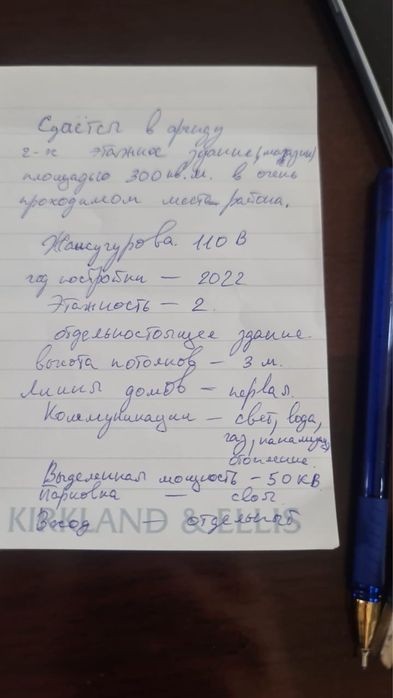 Сдаётся в аренду
2-х этажное здание (магазин)
площадью 300 кв.м. в очень
проходимом месте района.
Жансугурова 110 В
год постройки — 2022
Этажность — 2.
отдельностоящее здание.
высота потолков — 3 м.
Линия домов — первая.
Коммуникации — свет, вода,
газ, канализация,
отопление.
Выделенная мощность — 50 КВ.
Парковка — своя
KIRKLAND & ELLIS
Вход — отдельный